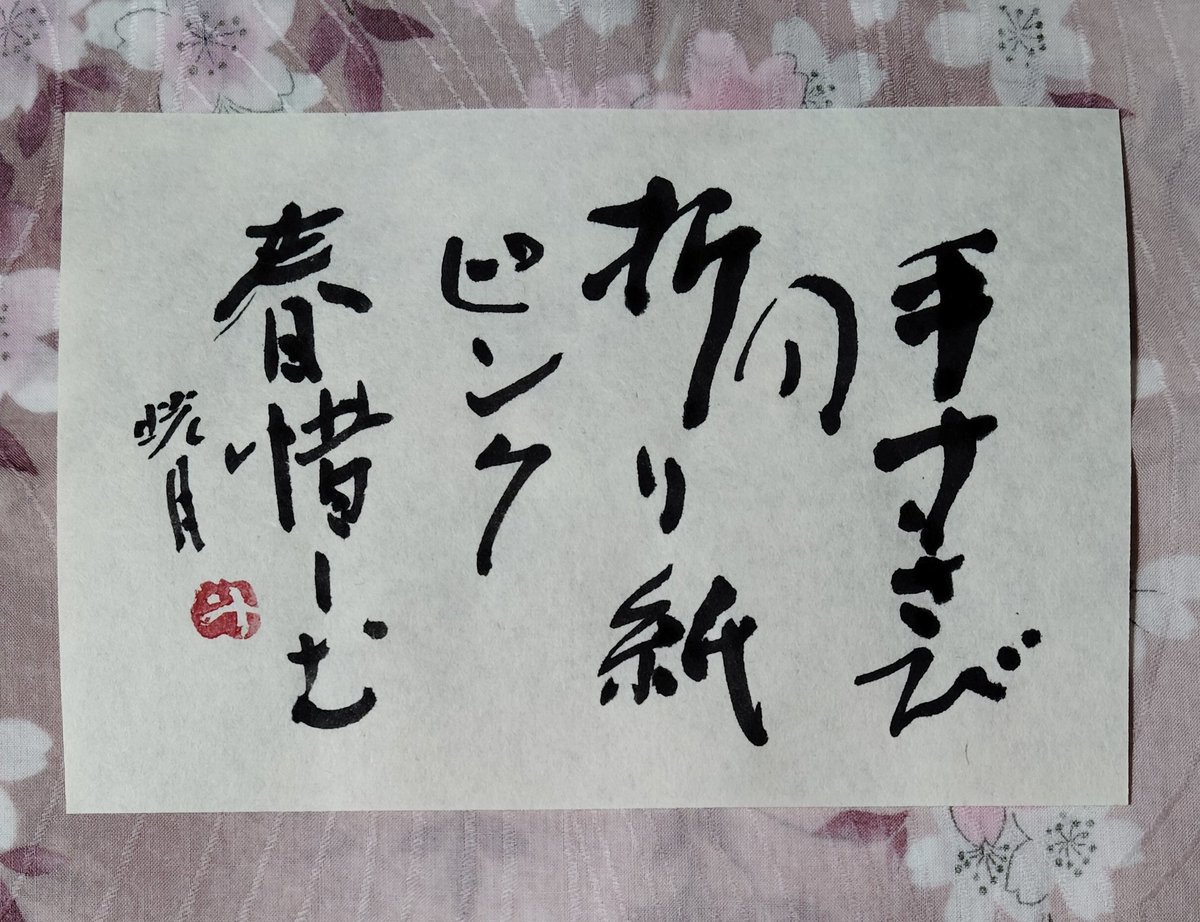 手すさび
の
折り紙
ピンク
春惜しむ
晄月